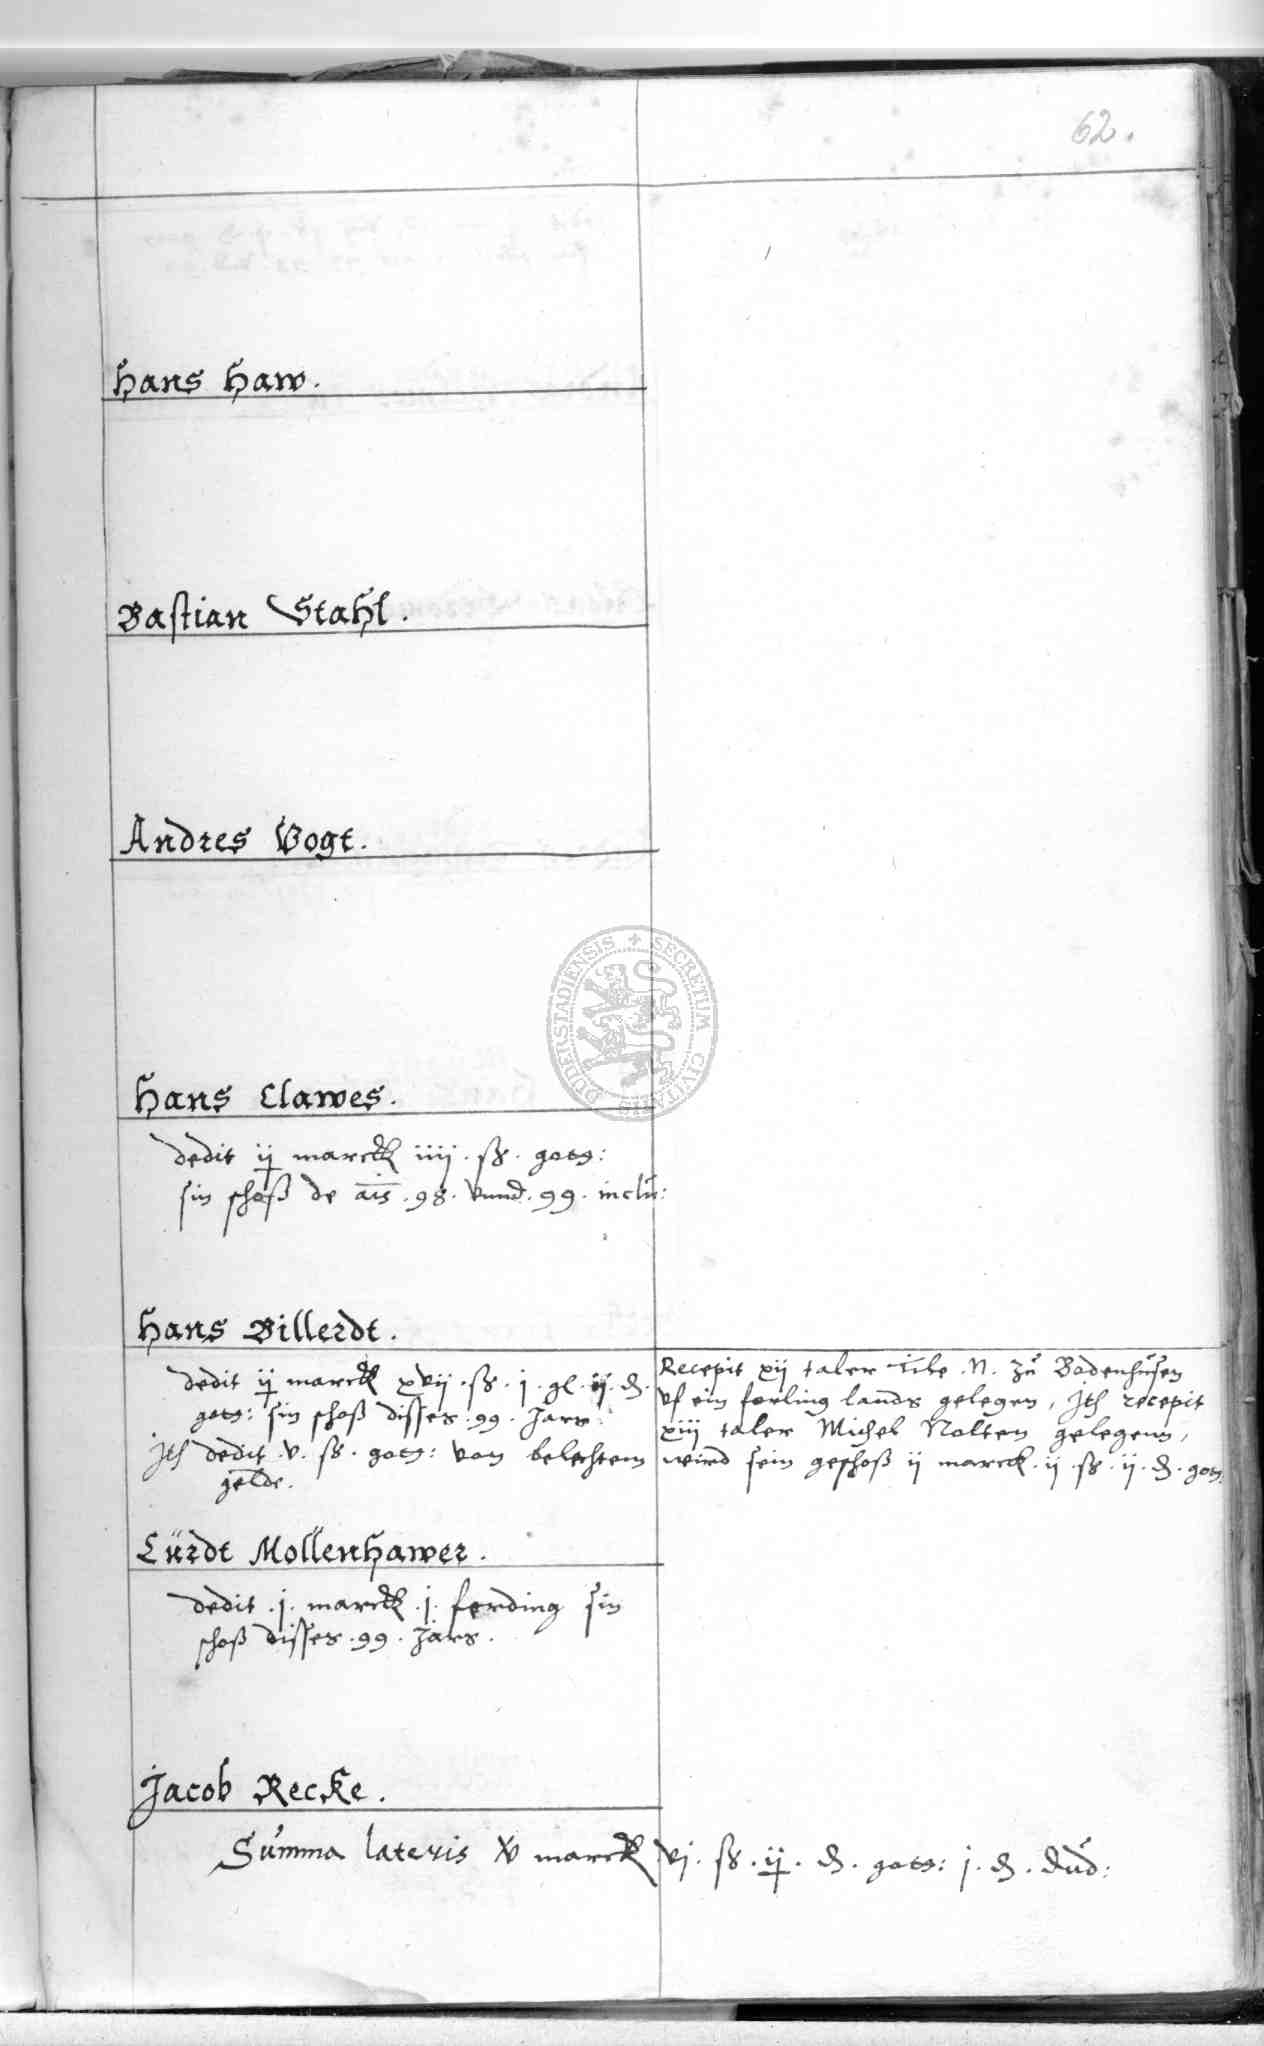 62.
Hans Haw.
Bastian Stahl.
Andres Vogt.
DUDERSTADIENSIS + SECRETUM CIVITATIS
Hans Clawes.
dedit ij marck iiij. ß. gotg:
sin schoß de ais .98. vnnd .99. inclu:
Hans Billerdt.
dedit ij marck xvij. ß. j. gl. ij. ₰.
gotg: sin schoß disses .99. Jars.
Jth dedit .v. ß. gotg: von belechtem
gelde.
Recepit xij taler Tile .N. zu Bodenhusen
vf ein forling lands gelegen, Jth recepit
xiij taler Michel Nolten gelegenn,
wird sein geschoß ij marck. ij. ß. ij. ₰. gotg.
Curdt Mollenhawer.
dedit .j. marck .j. ferding sin
schoß disses .99. Jars.
Jacob Recke.
Summa lateris xv marck vj. ß. ij. ₰. gotg: j. ₰. Dud: